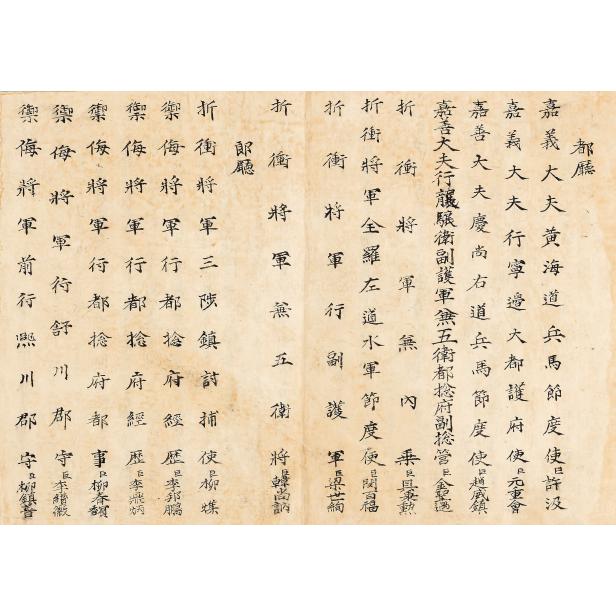 都廳
嘉義大夫黃海道兵馬節度使臣許汲
嘉義大夫行寧邊大都護府使臣元重會
嘉善大夫慶尚右道兵馬節度使臣趙威鎮
嘉善大夫行龍驤衛副護軍兼五衛都捴府副捴管臣金聖遇
折衝將軍兼內乘臣具秉勲
折衝將軍全羅左道水軍節度使臣閔百福
折衝將軍行副護軍臣梁世絢
折衝將軍兼五衛將臣韓尚訥
郞廳
折衝將軍三陟鎮討捕使臣柳㷼
禦侮將軍行都捴府經歷臣李邦鵬
禦侮將軍行都捴府經歷臣李鼎炳
禦侮將軍行都捴府都事臣柳春馥
禦侮將軍行舒川郡守臣李纘徽
禦侮將軍前行熙川郡守臣柳鎮